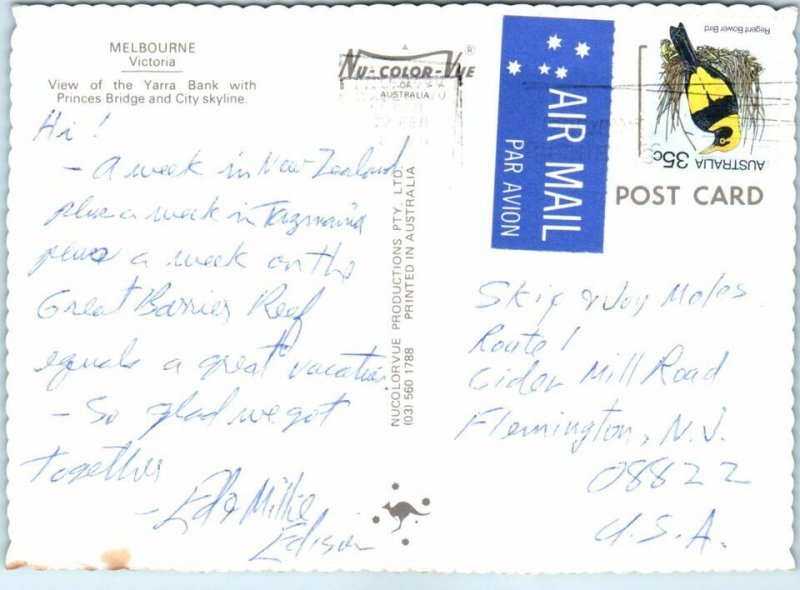 MELBOURNE
Victoria
View of the Yarra Bank with
Princes Bridge and City skyline.
Hi!
- A week in New Zealand
plus a week in Tazmania
plus a week on the
Great Barrier Reef
equals a great vacation
- So glad we got
together
- Ed & Millie
Edison
A
NU-COLOR-VUE ®
OF
AUSTRALIA
NUCOLORVUE PRODUCTIONS PTY. LTD.
(03) 560 1788 PRINTED IN AUSTRALIA
AIR MAIL
PAR AVION
Regent Bower Bird
AUSTRALIA 35c
POST CARD
Skip & Joy Moles
Route 1
Cider Mill Road
Flemington, N.J.
08822
U.S.A.